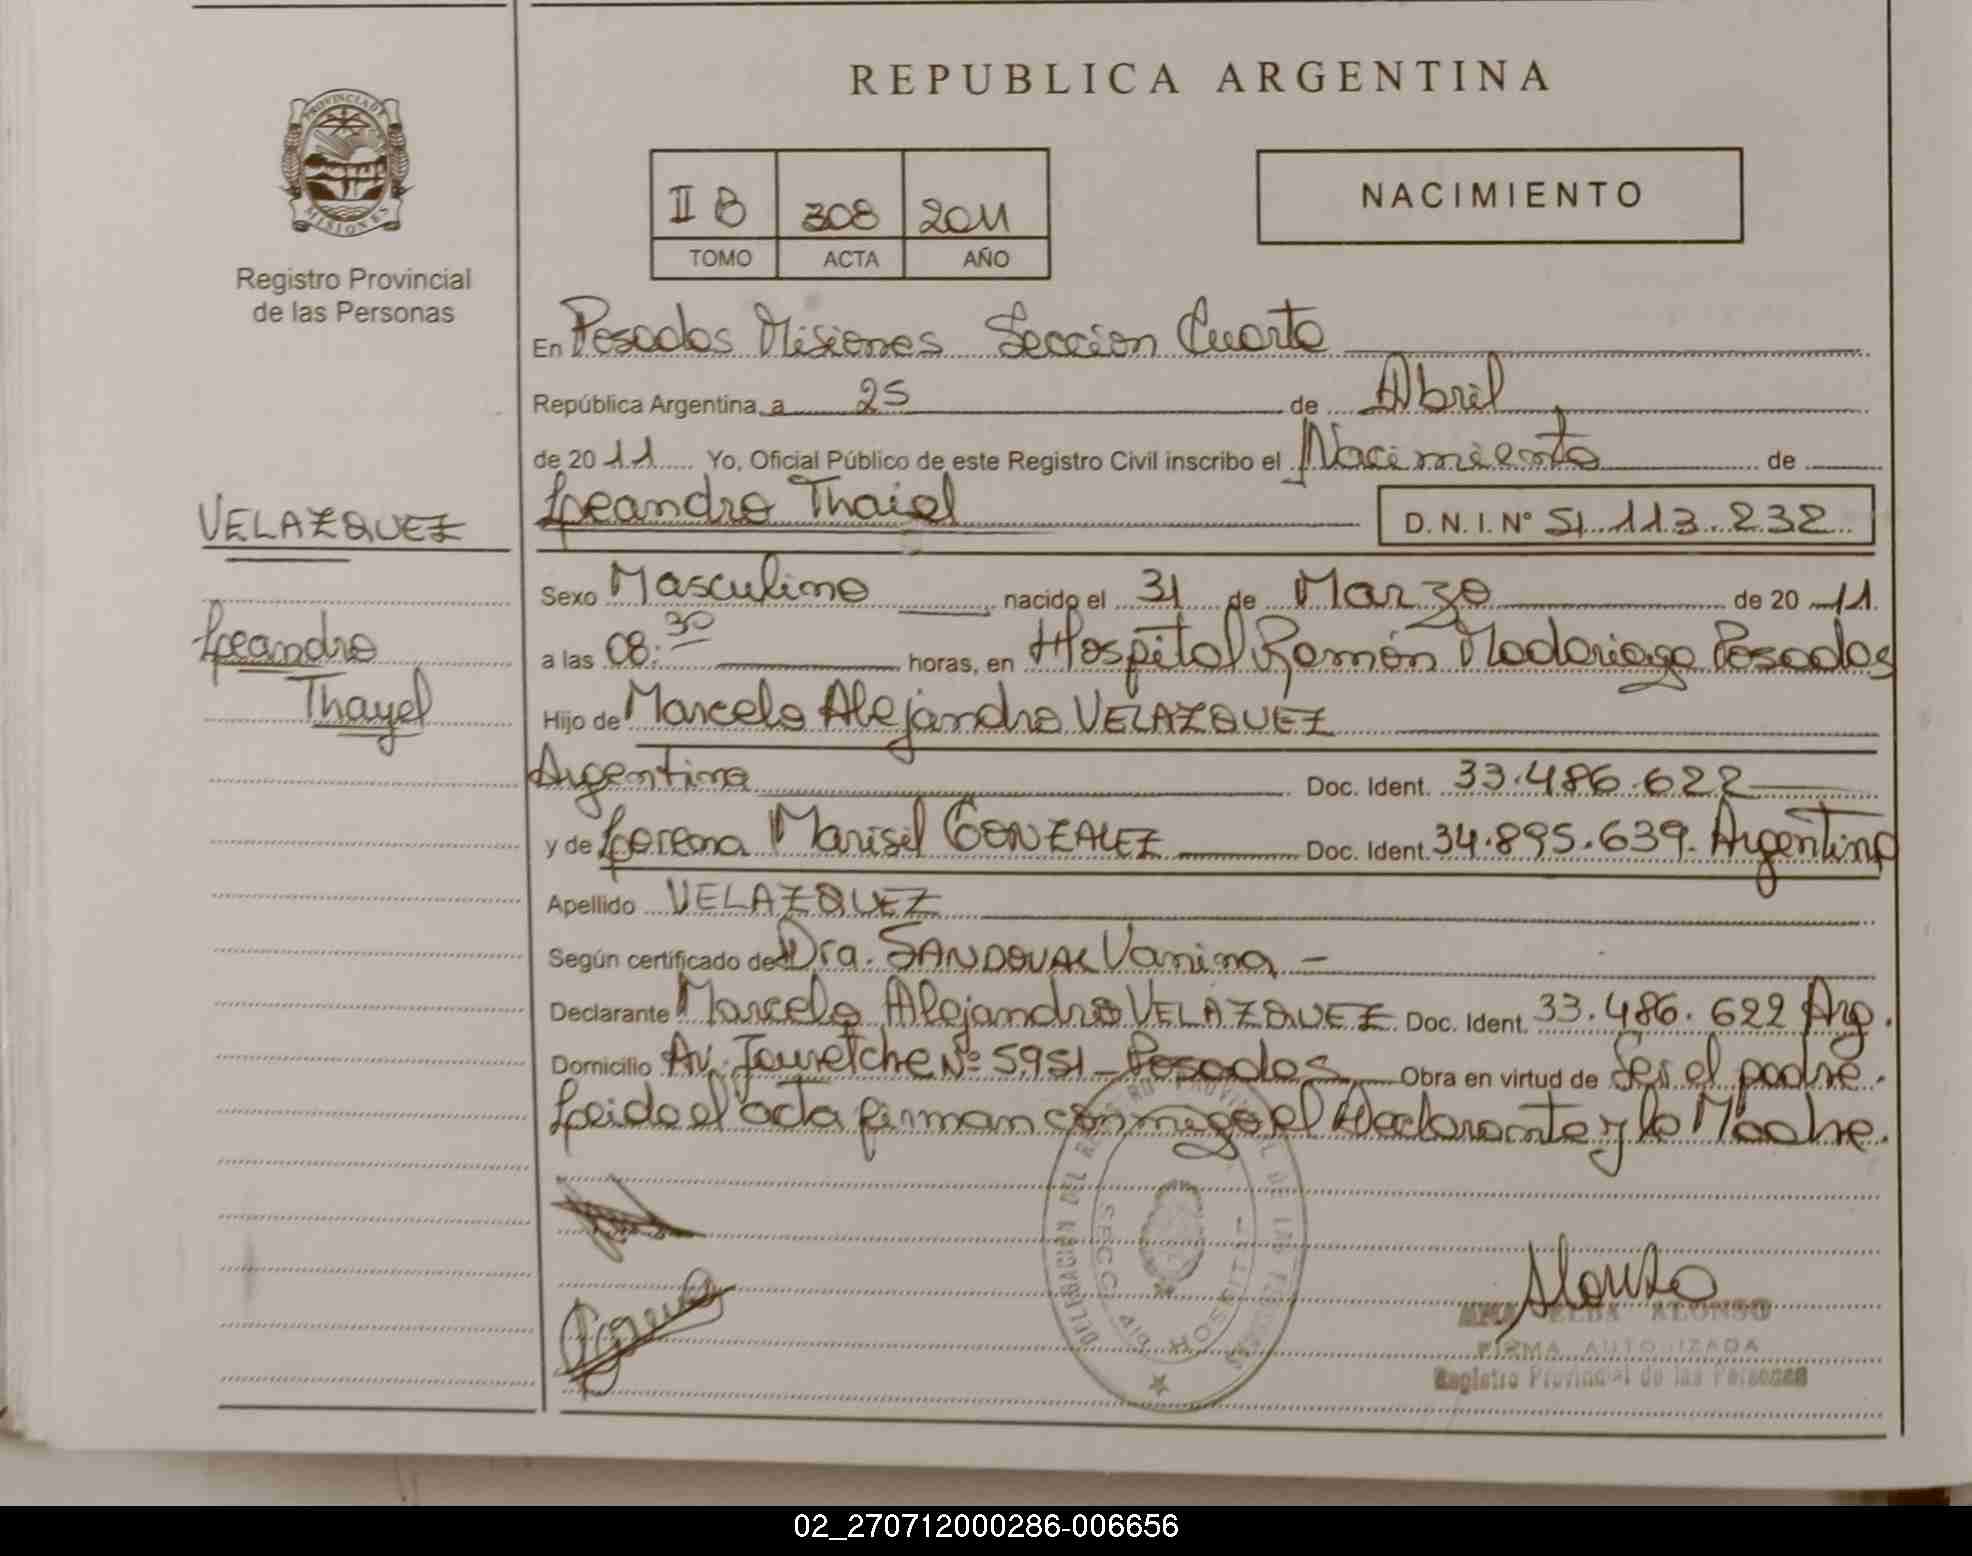 REPUBLICA ARGENTINA
PROVINCIA DE
MISIONES
Registro Provincial
de las Personas
II B 308 2011
TOMO ACTA AÑO
NACIMIENTO
En Posadas Misiones Seccion Cuarta
República Argentina a 25 de Abril
de 2011 Yo, Oficial Público de este Registro Civil inscribo el Nacimiento de
VELAZQUEZ
Leandro Thaiel D. N. I. N° 51.113.232
Sexo Masculino nacido el 31 de Marzo de 2011
Leandro
Thayel
a las 08:30 horas, en Hospital Ramón Madariaga Posadas
Hijo de Marcelo Alejandro VELAZQUEZ
Argentina Doc. Ident. 33.486.622
y de Lorena Marisel GONZALEZ Doc. Ident. 34.895.639. Argentina
Apellido VELAZQUEZ
Según certificado de Dra. SANDOVAL Vanina -
Declarante Marcelo Alejandro VELAZQUEZ Doc. Ident. 33.486.622 Arg.
Domicilio Av. Jauretche Nº 5951 - Posadas Obra en virtud de ser el padre.
Leido el acta firman conmigo el declarante y la Madre.
Alonso
ANA ELBA ALONSO
FIRMA AUTORIZADA
Registro Provincial de las Personas
02_270712000286-006656